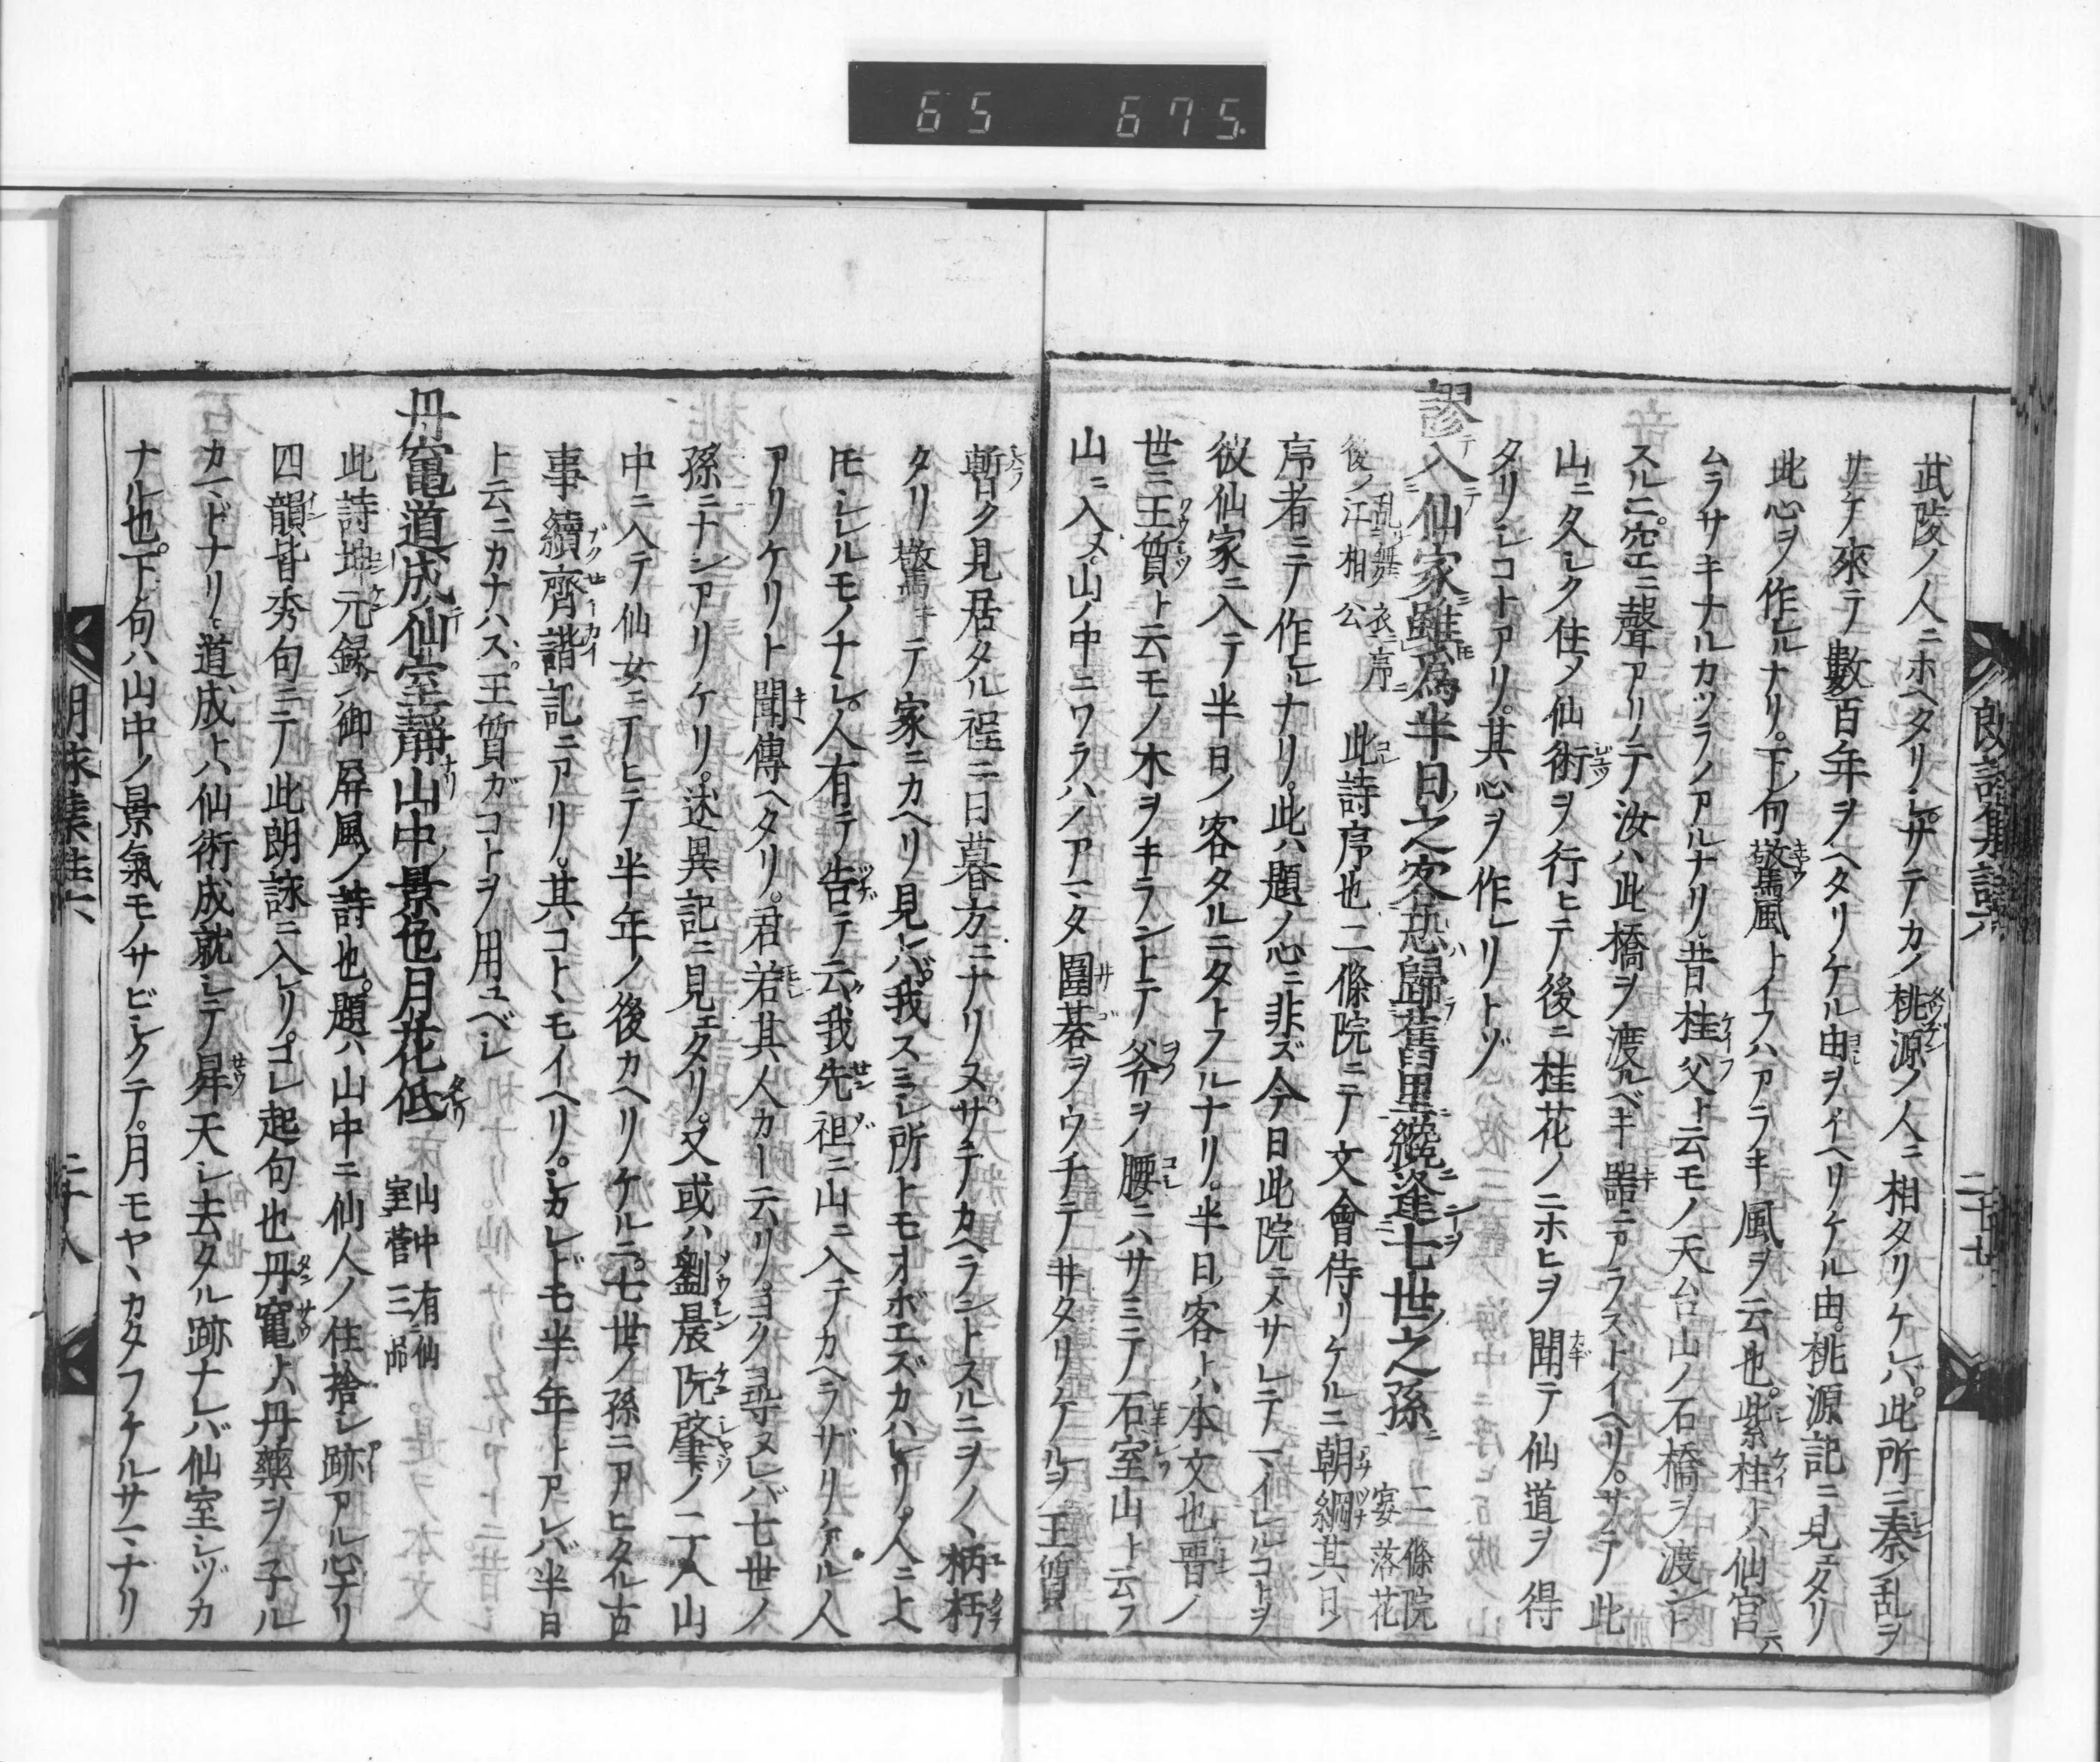 65 675.
武陵ノ人ニホヘタリシ。サテカノ桃源ノ人ニ相タリケレバ。此所ニ秦ノ乱ヲ
サケ來テ數百年ヲヘタリケル由ヲイヘリケル由。桃源記ニ見ヱタリ
此心ヲ作レルナリ。下ノ句驚風トイフハアラキ風ヲ云也。紫桂トハ仙宮ニ
ムラサキナルカツラノアルナリ。昔桂父ト云モノ天台山ノ石橋ヲ渡ント
スルニ。空ニ聲アリテ汝ハ此橋ヲ渡ルベキ器ニアラストイヘリ。サテ此
山ニ久シク住メ仙術ヲ行ヒテ後ニ桂花ノニホヒヲ聞テ仙道ヲ得
タリシコトアリ。其心ヲ作レリトゾ
謬入仙家雖爲半日之客恐歸舊里纔逢七世之孫 二條院宴落花
乱舞衣序 後ノ江相公 此詩序也二條院ニテ文會侍リケルニ朝綱其日ノ
序者ニテ作レルナリ。此ハ題ノ心ニ非ズ今日此院ニメサレテマイレルコトヲ
彼仙家ニ入テ半日ノ客タルニタトフルナリ。半日ノ客トハ本文也晋ノ
世ニ王質ト云モノ木ヲキラントテ斧ヲノ腰ニハサミテ石室山ト云フ
山ニ入ヌ。山ノ中ニワラハノアマタ圍碁ヲウチテ井タリケルヲ王質
暫ク見居タル程ニ日暮方ニナリヌ。サテカヘラントスルニヲノヽ柄朽
タリ驚キテ家ニカヘリ見レバ我スミシ所トモオボエズカハレリ。人ニトヘ
𪜈シレルモノナシ。人有テ告テ云我先祖ニ山ニ入テカヘラザリケル人
アリケリト聞傳ヘタリ。君若其人カト云リ。ヨク尋ヌレバ七世ノ
孫ニナンアリケリ。述異記ニ見ヱタリ。又或ハ劉晨阮肇ノ二人山
中ニ入テ仙女ニアヒテ半年ノ後カヘリケルニ。七世ノ孫ニアヒタル古
事續齊諧記ニアリ。其コトヽモイヘリ。シカレドモ半年トアレバ半日
ト云ニカナハズ。王質ガコトヲ用ユベシ
丹竈道成仙室靜山中景色月花低 山中有仙室菅三品
此詩坤元録ノ御屏風ノ詩也。題ハ山中ニ仙人ノ住捨シ跡アル心ナリ
四韻皆秀句ニテ此朗詠ニ入レリ。コレ起句也丹竈トハ丹藥ヲ子ル
カマドナリ。道成トハ仙術成就シテ昇天シ去タル跡ナレバ仙室シヅカ
ナル也。下句ハ山中ノ景氣モノサビシクテ。月モヤヽカタフケルサマナリ
二十七
二十八